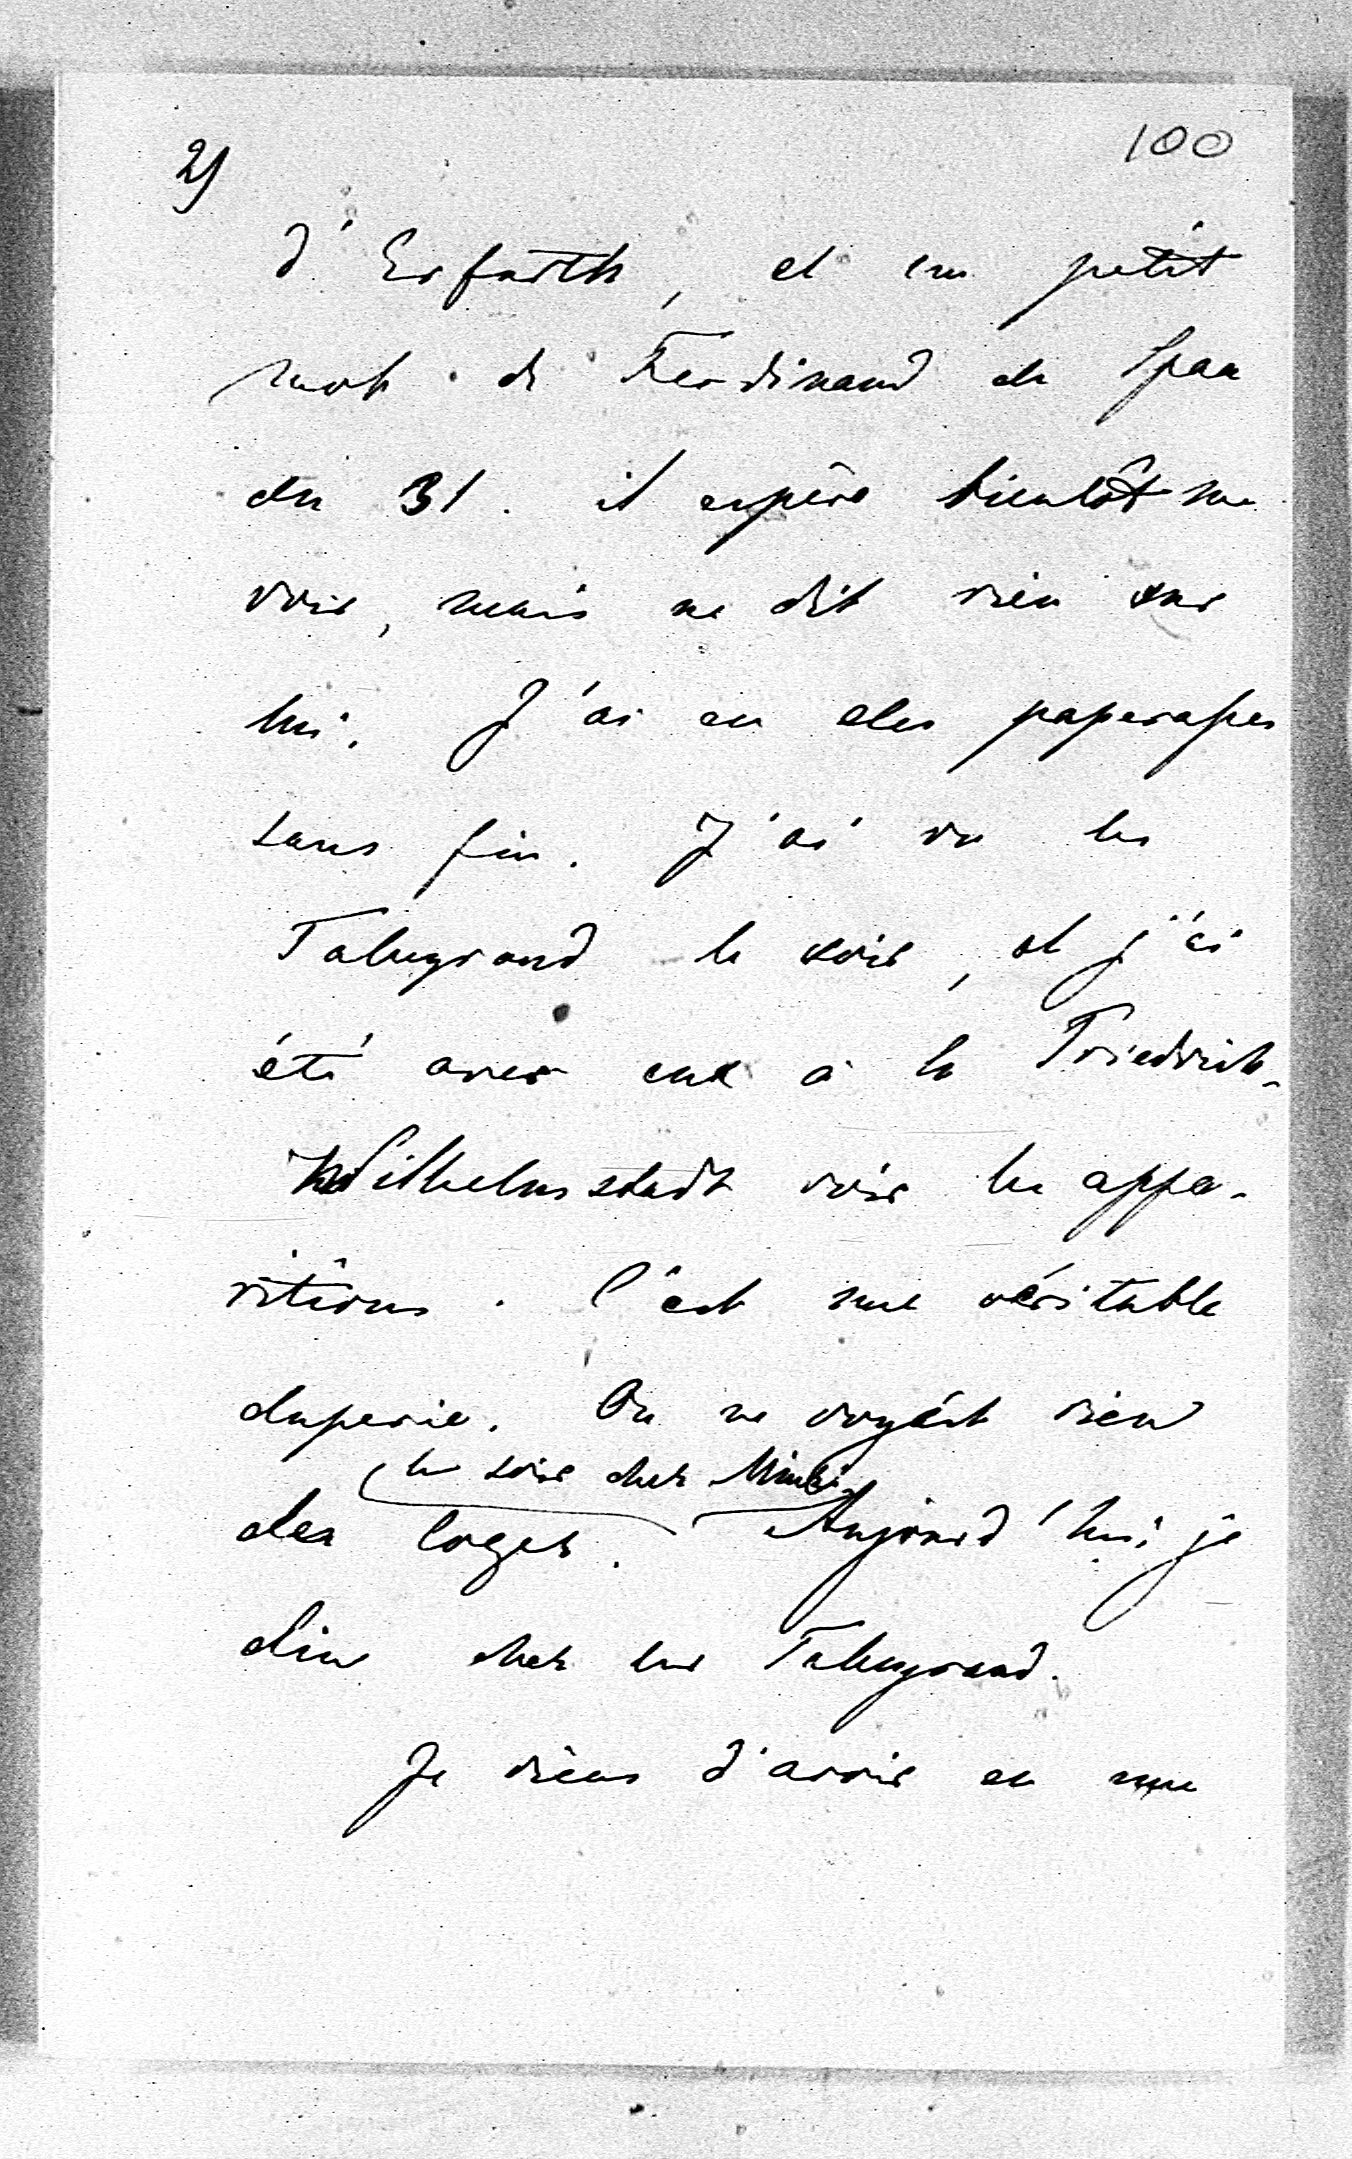 2)
100
d'Erfurth, et un petit
mot de Ferdinand de Spaa
du 31. il espère bientôt me
voir, mais ne dit rien sur
lui. J'ai eu des paperasses
sans fin. J'ai vu les
Talleyrand le soir, et j'ai
été avec eux à la Friedrich-
Wilhelmstadt voir les appa-
ritions. C'est une véritable
duperie. On ne voyait rien
le soir chez Mimi.
des loges. Aujourd'hui je
dine chez les Talleyrand.
Je viens d'avoir eu une